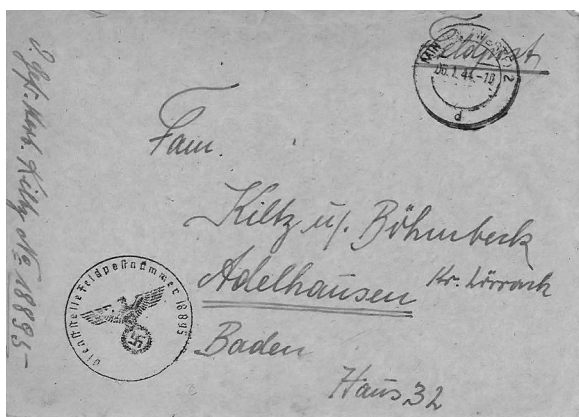 Feldpost
MIN (WESTF) 2
06.1.44-18
d
Fam.
Kiltz u. Böhmbeck
Adelhausen Kr. Lörrach
Baden
Haus 32
Dienststelle Feldpostnummer 18895
Kiltz No 18895